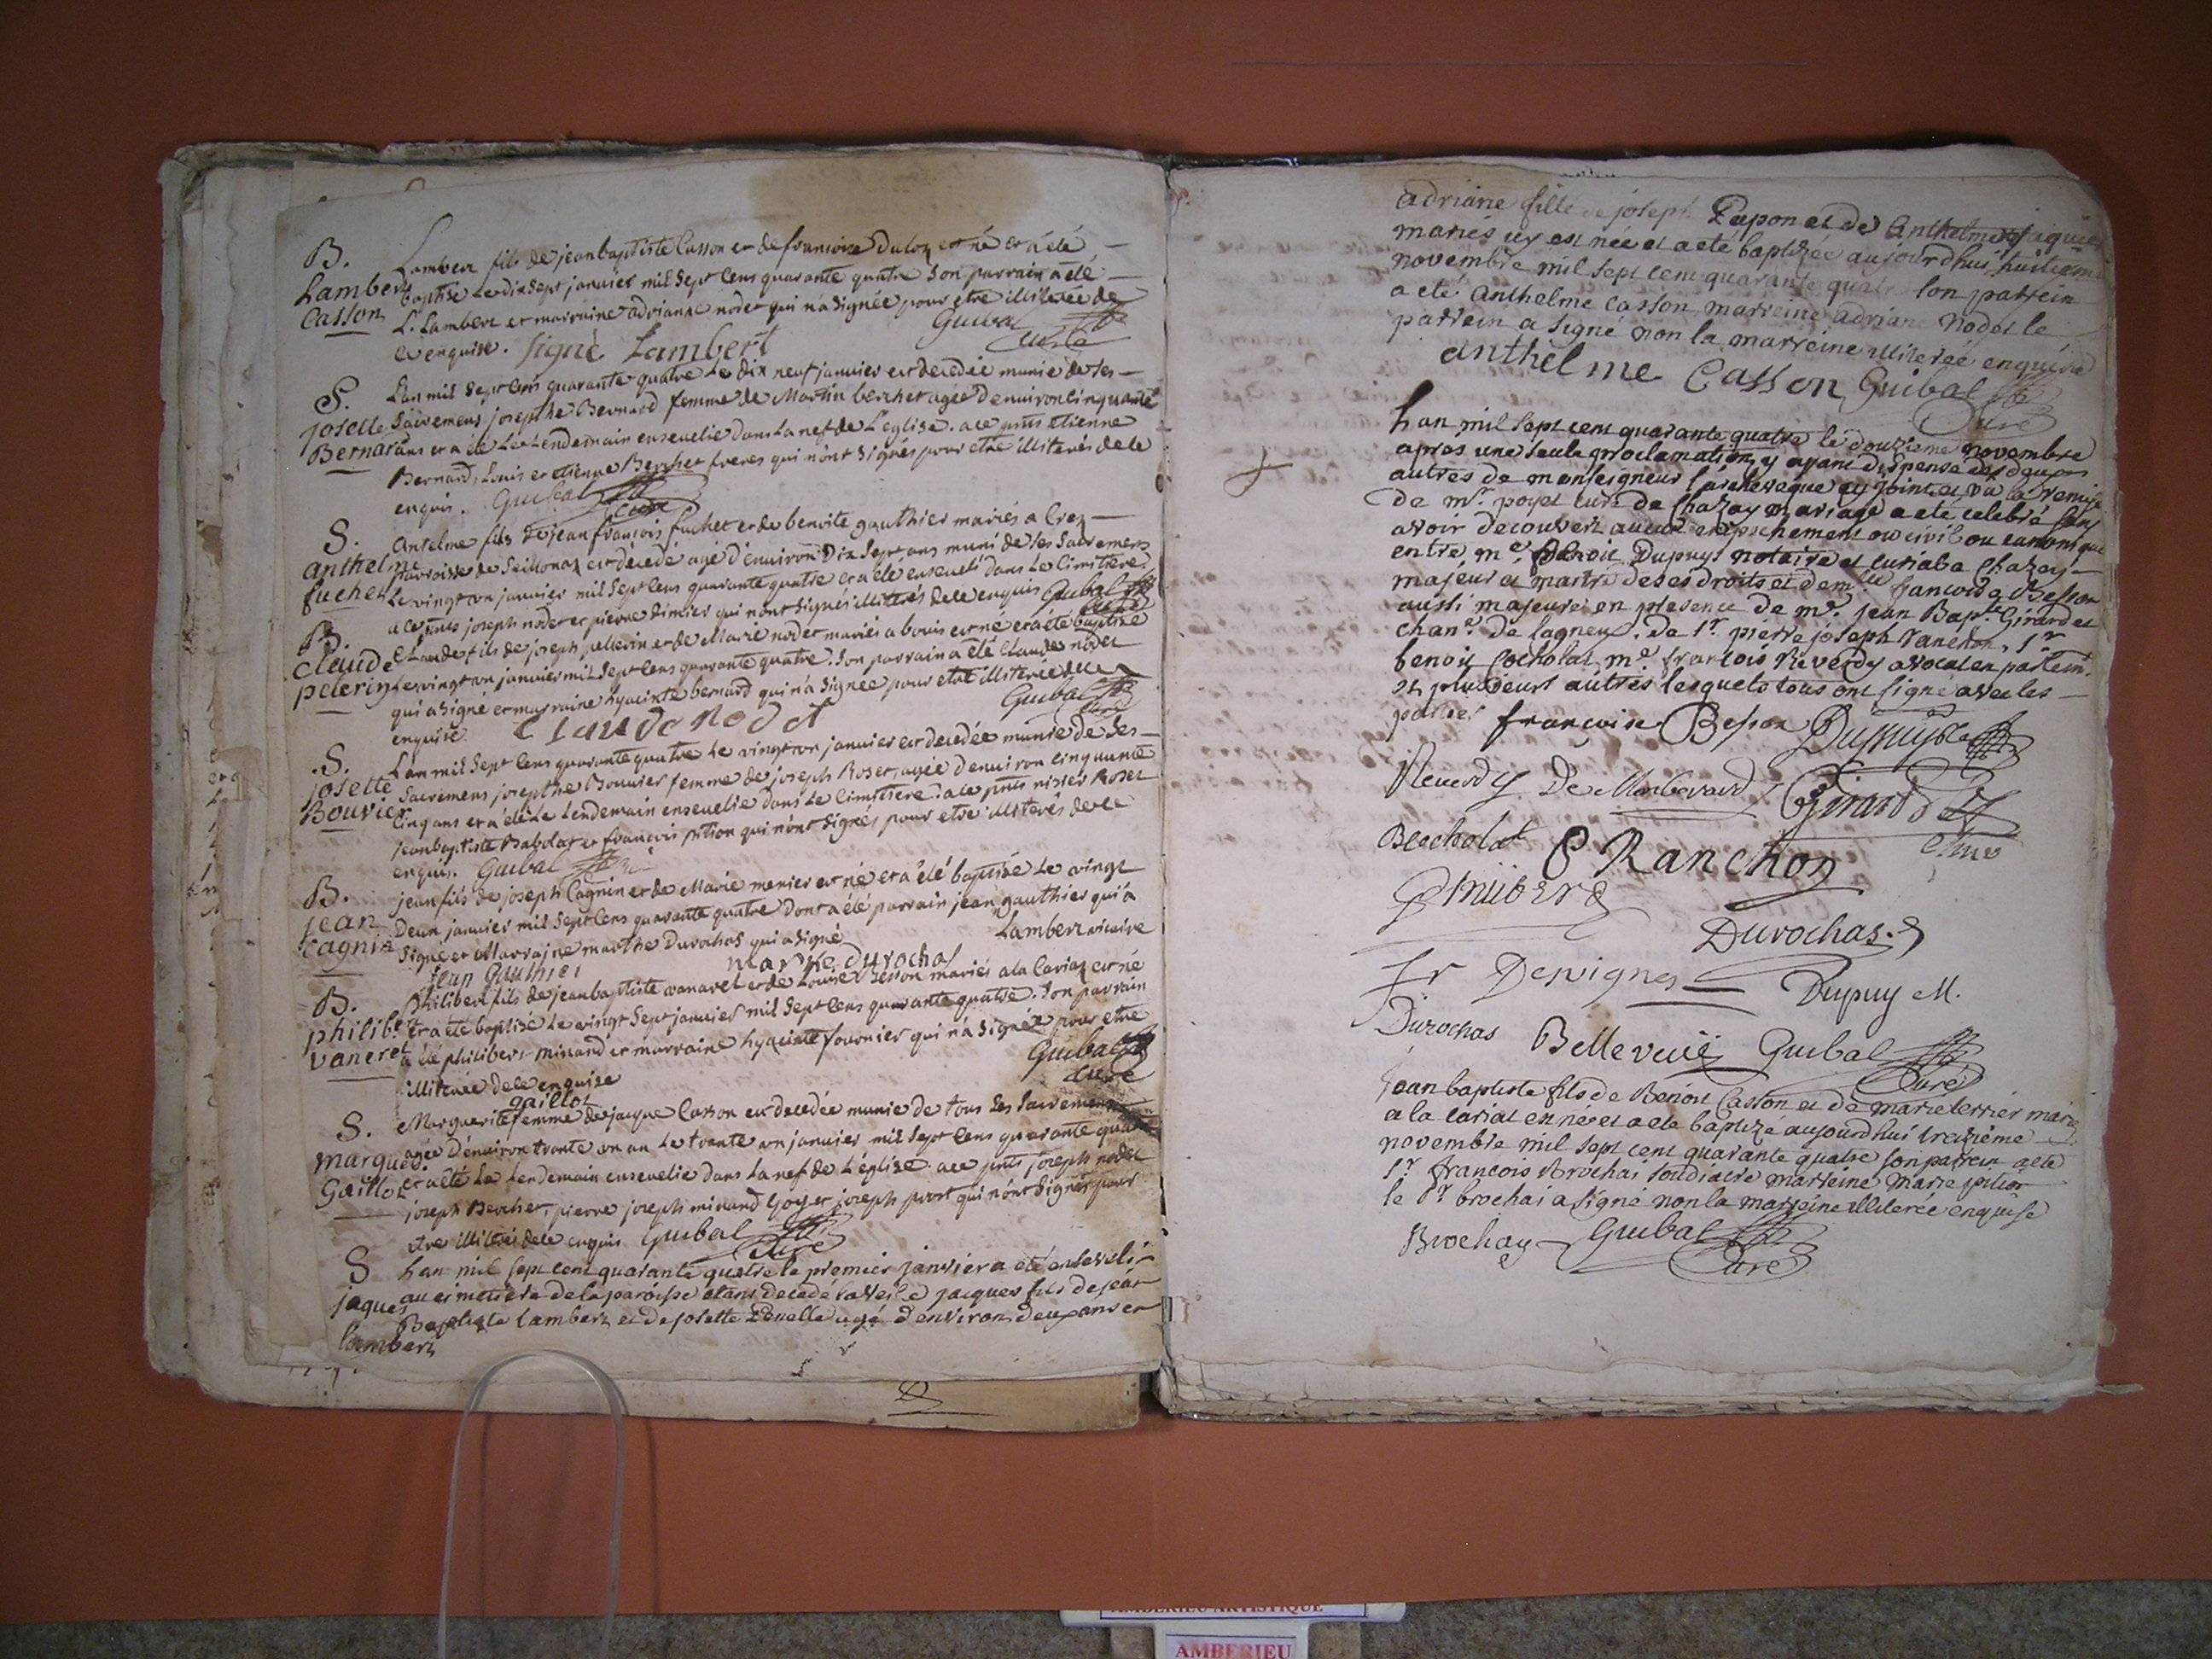 B.
Lambert
Casson
Lambert fils de jean baptiste Casson et de francoise Duloz est né et a été
baptisé Le dix sept janvier mil sept Cens quarante quatre Son parrain a été
L. Lambert et marraine adrianne nodet qui n'a signée pour etre illiterée de
ce enquise. signé Lambert Guibal curé
S.
josette
Bernard
L'an mil sept Cens quarante quatre Le dix neuf janvier est decedée munie de ses
Sacremens josepthe Bernard femme de Martin berchet agée d'environ Cinquante
ans et a été Le Lendemain ensevelie dans La nef de L'eglise. a ce pnts etienne
Bernard, Louis et etienne Berchet freres qui n'ont signés pour etre illiterés de ce
enquis. Guibal curé
S.
anthelme
fuchet
Antelme fils de jean francois fuchet et de benoite gauthier mariés a Crez
parroisse de Seillonaz est décedé agé d'environ Dix Sept ans muni de ses Sacremens
Le vingt un janvier mil Sept Cens quarante quatre et a été enseveli dans Le Cimitiere
a ce pnts joseph nodet et pierre dimier qui n'ont signés illiterés de ce enquis Guibal curé
B.
claude
pelerin
Claude fils de joseph pellerin et de Marie nodet mariés a bouis est né et a été baptisé
Le vingt un janvier mil Sept Cens quarante quatre. Son parrain a été Claude nodet
qui a signé et marraine hyacinte bernard qui n'a signée pour etre illiterée de ce
enquise. Claude Nodet Guibal curé
S.
josette
Bouvier
L'an mil Sept Cens quarante quatre Le vingt un janvier est decedée munie de ses
Sacremens josepthe Bouvier femme de joseph Roset, agée d'environ cinquante
cinq ans et a été Le Lendemain ensevelie dans Le Cimitiere. a ce pnts nisier Roset
jean baptiste Babolat et francois pition qui n'ont signés pour etre illiterés de ce
enquis. Guibal curé
B.
jean
cagnin
jean fils de joseph Cagnin et de Marie menier est né et a été baptisé Le vingt
Deux janvier mil Sept Cens quarante quatre Dont a été parrain jean gauthier qui a
Signé et Marraine marthe Durochas qui a signé Lambert vicaire
jean Gauthier marthe durochas
B.
philibt
vaneret
Philibert fils de jean baptiste vanaret et de Louise Besson mariés a la Cariaz est né
et a été baptisé Le vingt Sept janvier mil Sept Cens quarante quatre. Son parrain
a été philibert minard et marraine hyacinte fournier qui n'a signée pour etre
illiterée de ce enquise Guibal curé
S.
margued.
Gaillot
gaillot
Marguerite femme de jacque Casson est decedée munie de tous Ses Sacremens
agée D'environ trante un an Le trante un janvier mil Sept Cens quarante quatre
et a été Le Lendemain ensevelie dans La nef de L'église. a ce pnts joseph nodet
joseph Berchet, pierre joseph minard Goy et joseph prost qui n'ont signés pour
etre illiterés de ce enquis Guibal Curé
S
jaques
lambert
Lan mil sept cent quarante quatre le premier janvier a été enseveli
au cimetiere de la paroisse etant decedé la veille jacques fils de jean
Baptiste lambert et de josette Edouelle agé d'environ deux ans et
adriane fille de joseph Papon et de Anthelmette
mariés icy est née et a été baptizée aujourdhui huitieme
novembre mil sept cent quarante quatre son parrein
a eté Anthelme Casson marreine adriane Nodet le
parrein a signé non la marreine illiterée enquise
anthelme Casson Guibal Curé
Lan mil sept cent quarante quatre le douzieme novembre
apres une seule proclamation, y ayant dispense des deux
autres de monseigneur l'archeveque cy jointe et vû la remise
de mr. poyet curé de Chazey mariage a eté celebré sans
avoir decouvert aucun empechement ou civil ou canonique
entre me. Benoit Dupuys notaire et curial a Chazey
majeur et maitre de ses droits et demlle francoise Besson
aussi majeure en presence de mr. jean Bapte. Girardet
chane. de lagneu. de Sr. pierre joseph Ranchon, Sr
benoit Cocholat, me. francois Reverdy avocat en parlemt.
et plusieurs autres lesquels tous ont signé avec les
parties francoise Besson Dupuys
Reverdy De Montverard Girardet
Becholat P Ranchon
Durochas
Fr Desvignes Dupuy M.
Durochas Bellevüe Guibal Curé
Jean baptiste fils de Benoit Casson et de marie terrier mariés
a la cariat est né et a eté baptizé aujourdhui treizieme
novembre mil sept cent quarante quatre son parrein a eté
Sr. francois Brochai soudiacre marreine marie pition
le Sr brochai a signé non la marreine illiterée enquise
Brochay Guibal Curé
AMBERIEU ARTISTIQUE
AMBERIEU